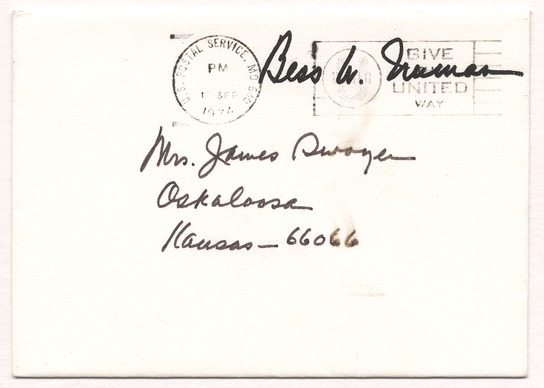 U.S. POSTAL SERVICE, MO
PM
SEP
1974
Bess W. Truman
GIVE
UNITED
WAY
Mrs. James Swoyer
Oskaloosa
Kansas - 66066